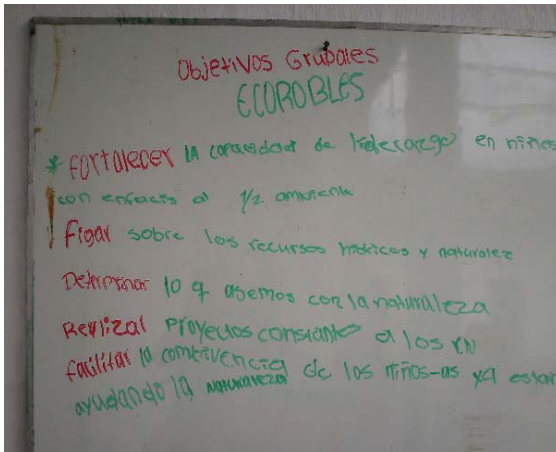 Objetivos Grupales
ECOROBLES
* Fortalecer la capacidad de liderazgo en niños
con enfacis al 1/2 ambiente
Figar sobre los recursos hidricos y naturalez
Determinar lo q asemos con la naturaleza
Reylizal Proyectos constantes a los RN
facilitar la combivencia de los niños-as ya estar
ayudando la naturaleza